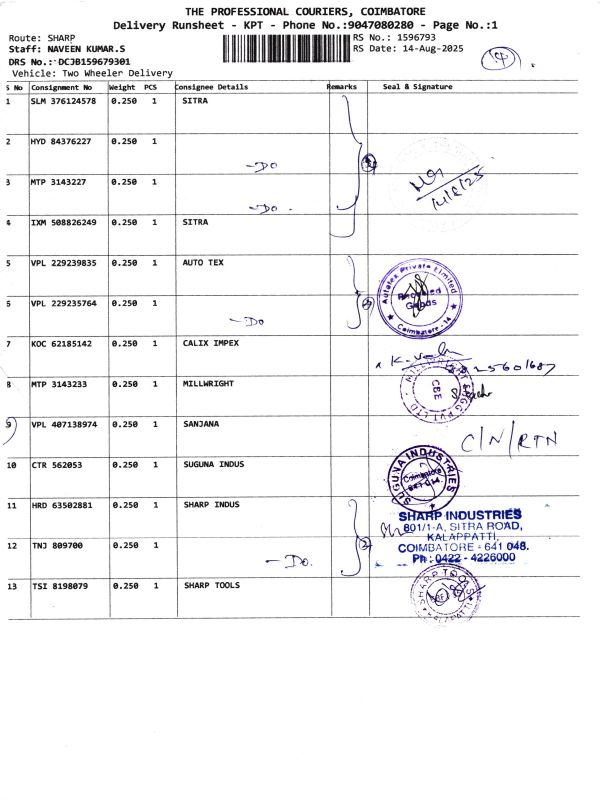 THE PROFESSIONAL COURIERS, COIMBATORE
Delivery Runsheet - KPT - Phone No.:9047080280 - Page No.:1
Route: SHARP
Staff: NAVEEN KUMAR.S
DRS No.: DCJB159679301
Vehicle: Two Wheeler Delivery
RS No.: 1596793
RS Date: 14-Aug-2025
S No Consignment No Weight PCS Consignee Details Remarks Seal & Signature
1 SLM 376124578 0.250 1 SITRA
2 HYD 84376227 0.250 1
-Do
3 MTP 3143227 0.250 1
-Do.
14/8/25
4 IXM 508826249 0.250 1 SITRA
5 VPL 229239835 0.250 1 AUTO TEX
Autotex Private Limited
Received
Goods
Coimbatore - 14
6 VPL 229235764 0.250 1
-Do
7 KOC 62185142 0.250 1 CALIX IMPEX
8 MTP 3143233 0.250 1 MILLWRIGHT
CBE
9 VPL 407138974 0.250 1 SANJANA
C/N/RTN
10 CTR 562053 0.250 1 SUGUNA INDUS
SUGUNA INDUSTRIES
Coimbatore
641 014.
11 HRD 63502881 0.250 1 SHARP INDUS
SHARP INDUSTRIES
801/1-A, SITRA ROAD,
KALAPPATTI,
COIMBATORE - 641 048.
Ph : 0422 - 4226000
12 TNJ 809700 0.250 1
-Do.
13 TSI 8198079 0.250 1 SHARP TOOLS
SHARP TOOLS